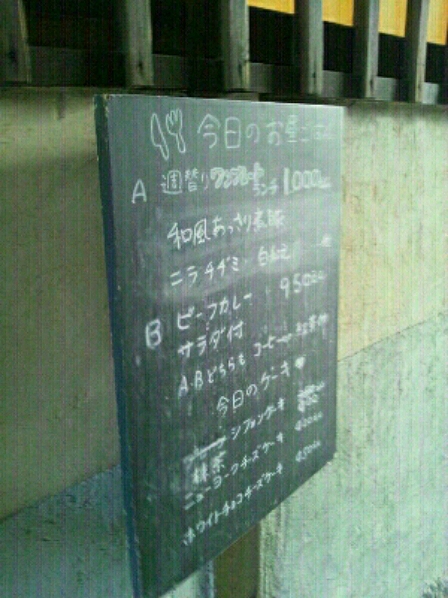 今日のお昼ごはん
A 週替りワンプレートランチ 1000
和風あっさり
ニラチヂミ
B ビーフカレー 950
サラダ付
A.Bどちらも コーヒー 紅茶付
今日のケーキ
抹茶 シフォンケーキ
ニューヨークチーズケーキ 400
ホワイトチョコチーズケーキ 450